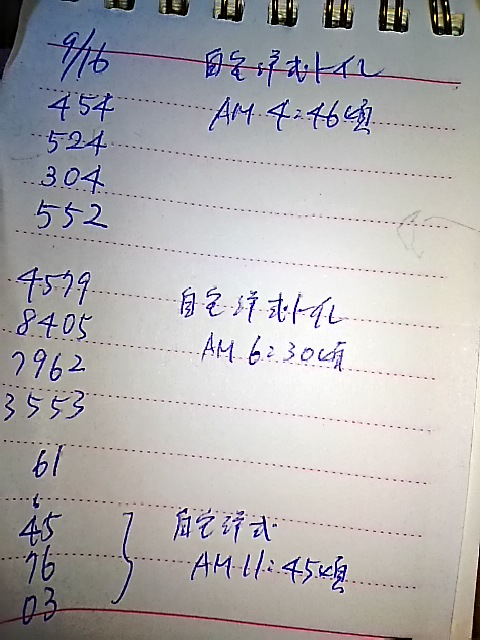 9/16 自宅洋式トイレ
454 AM 4:46頃
524
304
552
4579 自宅洋式トイレ
8405
7962 AM 6:30頃
3553
61
6
45 自宅洋式
76 AM 11:45頃
03